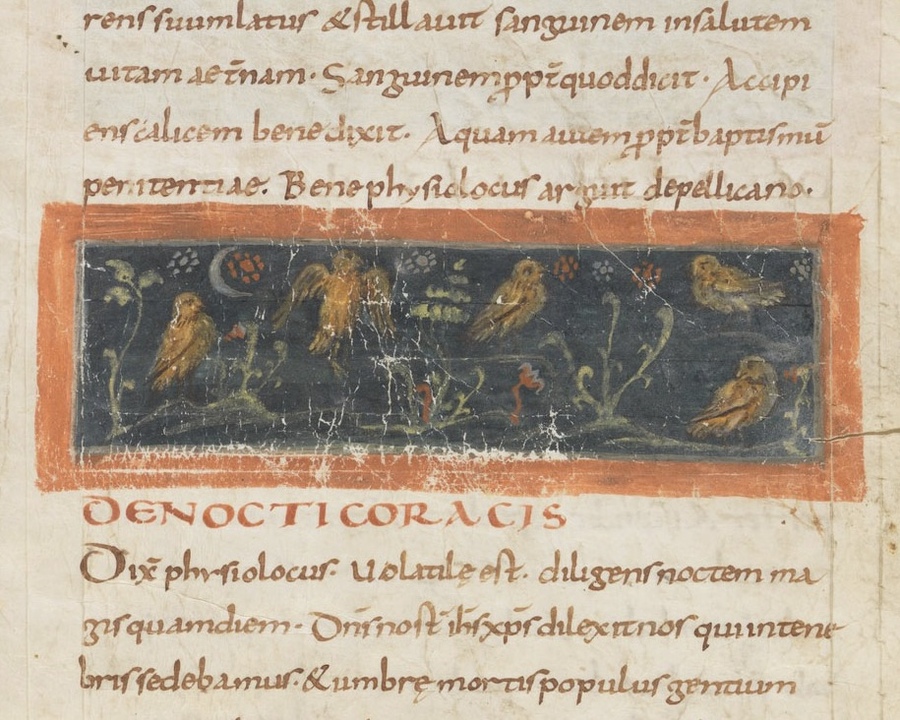 rens suum latus & stillauit sanguinem in salutem
uitam aet̄nam. Sanguinem ꝓpt̄ quod dicit. Accipi
ens calicem benedixit. Aquam autem ꝓpt̄ baptismū
penitentiae. Bene physiolocus arguit de pellicano.
DE NOCTICORACIS
Dix̄ physiolocus. Uolatile ę est. diligens noctem ma
gis quam diem. Dn̄s nost̄ ih̄s xp̄s dilexit nos qui in tene
bris sedebamus. & umbrę mortis populus gentium